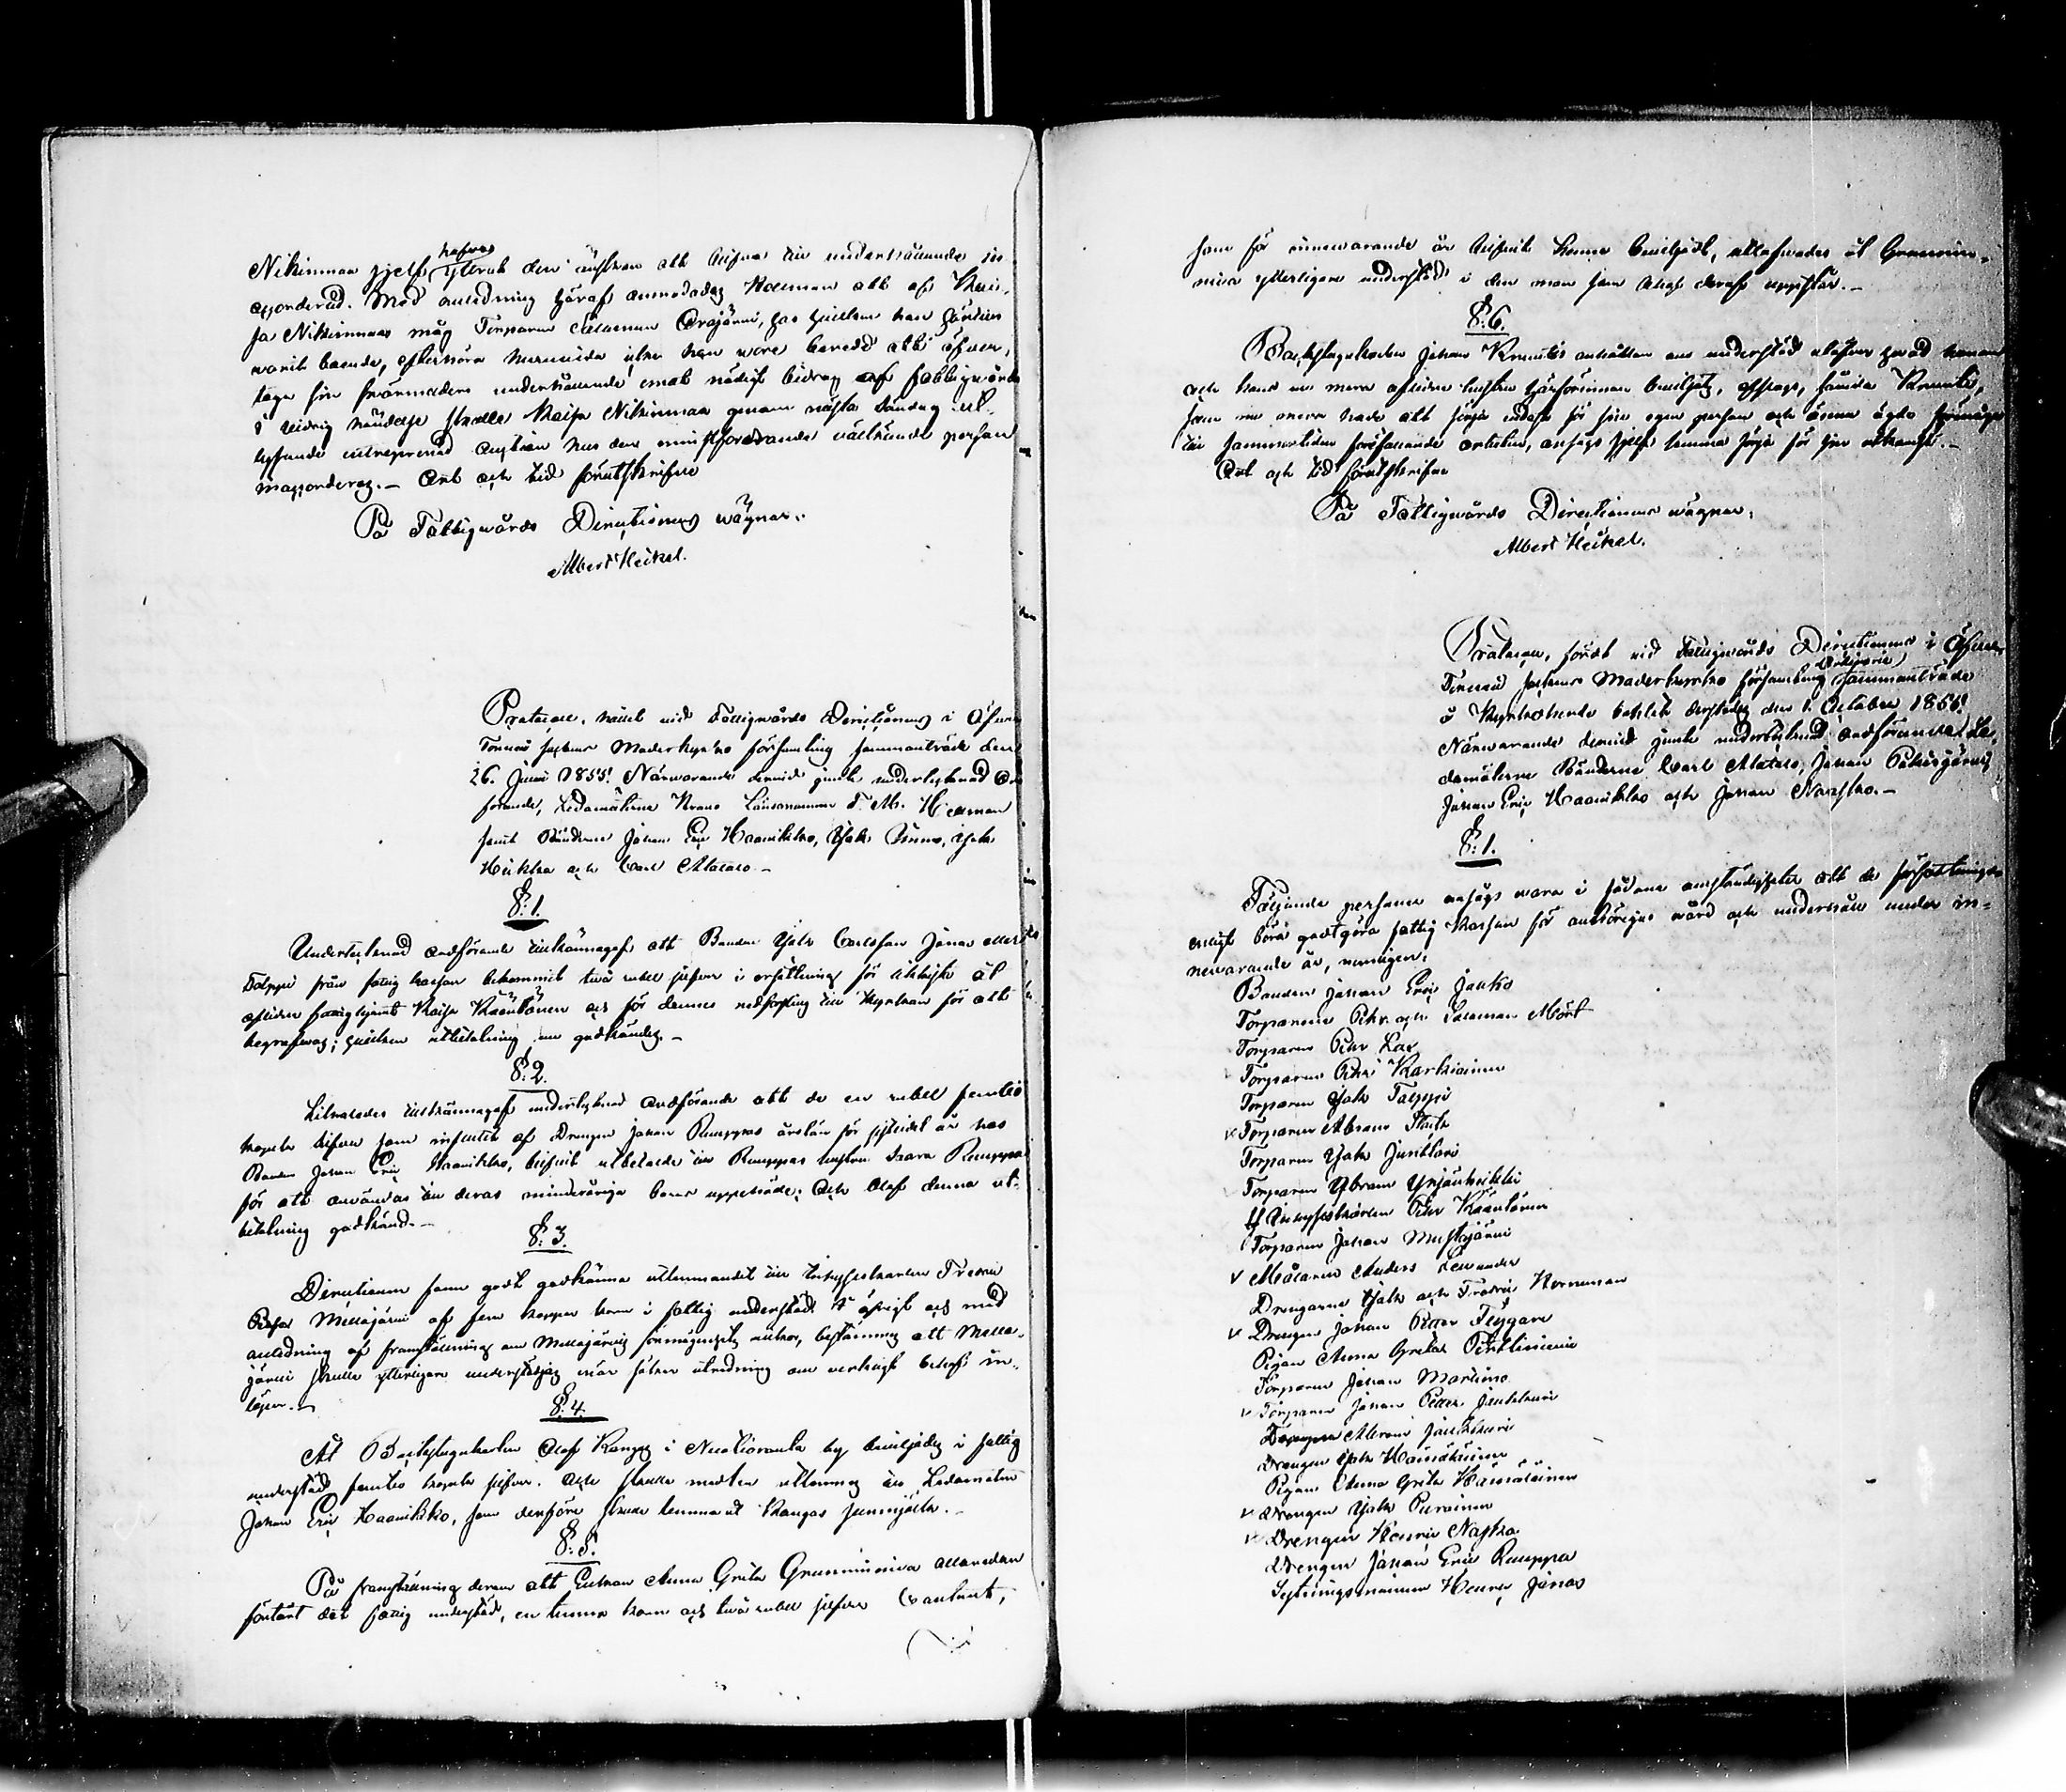 hafwa
Nikinmaa sjelf yttrat den önskan att blifwa till underhållande in
ackorderad. Med anledning häraf anmodades Klockaren att af Kai-
sa Nikinmaas måg Torparen Salomon Orajärvi, hos hwilken hon härtills
warit boende, efterhöra huruvida icke han wore beredd att öfwer-
taga sin svärmoders underhållande emot nödigt bidrag af fattigwården
i widrig händelse skulle Kaisa Nikinmaa genom nästa Söndag ut-
lysande entreprenad auction hos den minstfordrande välkände person
inackorderas.- Ort och tid förutskrifne
På Fattigwårds Directionens wägnar:
Albert Heikel.
Protocoll, hållit vid Fattigwårds Directionens i Öfwer
Torneå sockens Moderkyrko församling sammanträde den
26. Juni 1855! Närwarande dervid jemte undertecknad Ord-
förande, Ledamöterne Krono Länsmannen F. M. Heman
samt Bönderne Johan Eric Haanikko, Isak Rinno, Isak
Heikka och Carl Alatalo -
§: 1.
Undertecknad ordförande tillkännagaf att Bonden Isak Carlsson Jonas eller
Talppi från fattig kassan bekommit twå rubel silfwer i ersättning för likkista åt
aflidne fattighjonet Kaisa Kääntönen och för dennes nedforsling till kyrkan för att
begrafwas; hwilken utbetalning nu godkändes.-
§: 2.
Likaledes tillkännagaf undertecknad Ordförande att de en rubel femtio
kopek silfwer som influtit af Drengen Johan Ruuppas årslön för sistledit år hos
Bonden Johan Eric Haanikko, blifwit utbetalde till Ruuppas hustru Sara Ruuppa
för att användas till deras minderåriga barns uppehälle; Och blef denna ut-
betalning godkänd.-
§: 3.
Directionen fann godt godkänna utlemnandet till Inhysiskarlen Fredric
Mellajärvi af fem kappar korn i fattig understöd. I öfrigt och med
anledning af framställning om Mellajärvis förmögenhets wilkor, bestämdes att Mella-
järvi skulle ytterligare understödjas när säker utredning om werkligt behof in-
löper.-
§: 4.
At Backstugukarlen Olof Kangas i Nuotioranta by beviljades i fattig
understöd femtio kopek silfwer. Och skulle medlen utlemnas till Ledamoten
Johan Eric Haanikko, som derföre skulle lemna åt Kangas
§: 5.
På framställning derom att Enkan Anna Greta Grunninniva allaredan
förtärt det fattig understöd, en tunna korn och twå rubel silfwer contant,
som för innewarande år blifwit henne beviljadt, uttofwades åt Grunnin-
niva ytterligare understöd i den mon som behof deraf uppstår.-
§: 6.
Backstugukarlen Johan Kruuks anhållan om understöd utöfwer hwad honom
och hans nu mera aflidne hustru härförinnan beviljats, afslogs, såsom Kruuk,
som nu mera hade att sörja endast för sin egen person och ännu ägde förmåga
till sommartiden förefallande arbeten, ansågs sjelf kunna sörja för sin utkomst.-
Ort och tid förutskrifne
På Fattigwårds Directionens wägnar,
Albert Heikel.
Protocoll, fördt vid Fattigwårds Directionens i Öfwer
Torneå sockens Moderkyrko församling Ordinarie sammanträde
å Kyrkoherde bohlet Onsdagen den 1. October 1856!
Närwarande dervid jemte undertecknad ordförande Le-
damöterne Bönderne Carl Alatalo, Johan
Johan Eric Haanikko och Johan Narsko.-
§: 1.
Följande personer ansågs wara i sådana omständigheter att de författnings
enligt böra godtgöra fattig kassan för anhörigas wård och underhåll under in-
newarande år, nemligen:
Bonden Johan Eric Jauko
Torparene Pehr och Salomon Mört
Torparen Pehr Lax
Torparen Pehr Karkiainen
Torparen Isak Talppi
v Torparen Abram Stark
Torparen Isak Junttari
Torparen Abram Yrjänheikki
Inhysiskarlen Pehr Kääntönen
Torparen Johan Mustajärvi
v Målaren Anders Lewander
Drengarne Isak och Fredric Korneman
v Drengen Johan Petter Flyggare
Pigan Anna Greta
Torparen Johan Martimo
v Torparen Johan Petter Jankkuri
Drengen Abram Jankkuri
Drengen Isak Hämäläinen
Pigan Anna Greta Hämäläinen
v Drengen Isak Purainen
v Drengen Henric Naska
Drengen Johan Eric Ruuppa
Sytningsmannen Henric Jonas